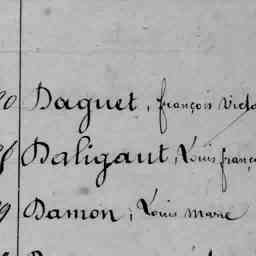 Daguet, françois Victo
Daligaut, Louis franço
Damon, Louis marie